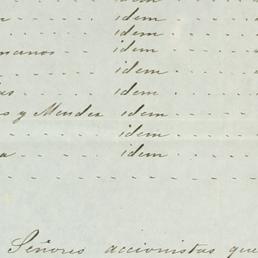 idem
idem
idem
idem
idem
idem
y Mendez idem
idem
idem
Señores accionistas que